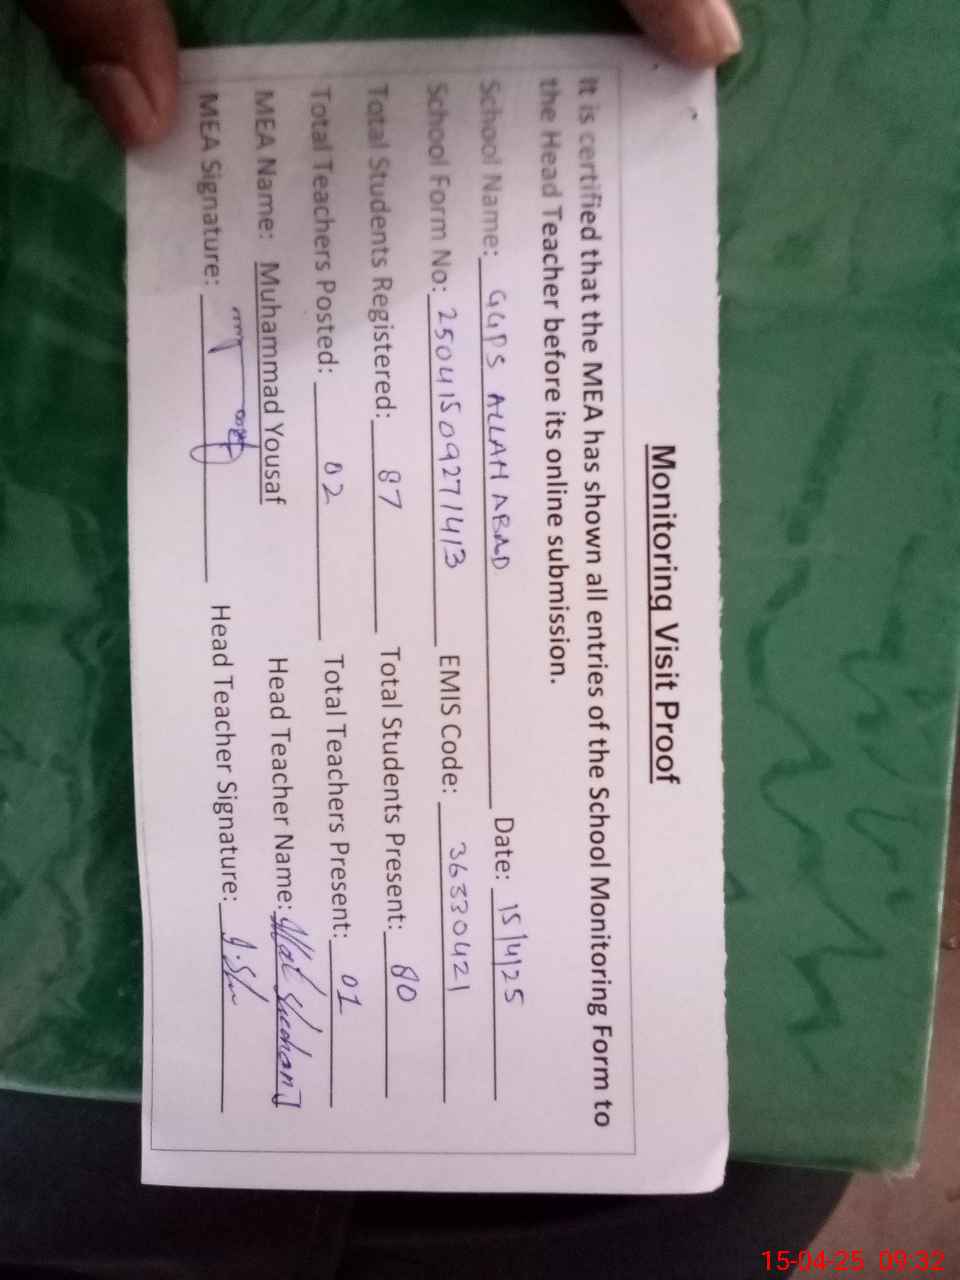 Monitoring Visit Proof
It is certified that the MEA has shown all entries of the School Monitoring Form to
the Head Teacher before its online submission.
School Name: GGPS ALLAH ABAD Date: 15/4/25
School Form No: 25041509271413 EMIS Code: 36330421
Total Students Registered: 87 Total Students Present: 80
Total Teachers Posted: 02 Total Teachers Present: 01
MEA Name: Muhammad Yousaf Head Teacher Name:
MEA Signature: Head Teacher Signature:
15-04-25 09:32